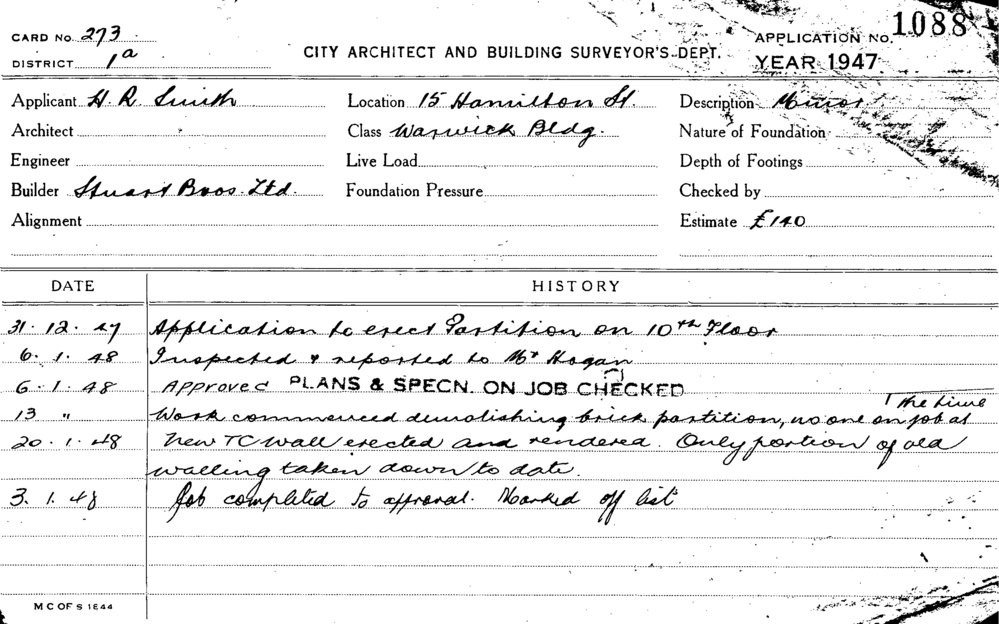 CARD No. 273
DISTRICT 1a
CITY ARCHITECT AND BUILDING SURVEYOR'S DEPT.
APPLICATION No. 1088
YEAR 1947
Applicant H. R. Smith Location 15 Hamilton St. Description Minor
Architect Class Warwick Bldg. Nature of Foundation
Engineer Live Load Depth of Footings
Builder Stuart Bros. Ltd. Foundation Pressure Checked by
Alignment Estimate £140
DATE HISTORY
31.12.47 Application to erect Partition on 10th Floor
6.1.48 Inspected & reported to Mr Hogan
6.1.48 Approved PLANS & SPECN. ON JOB CHECKED
the time
13 " Work commenced demolishing brick partition, no one on job at
20.1.48 New TC wall erected and rendered. Only portion of old
walling taken down to date.
3.1.48 Job completed to approval. Marked off list
M C OF S 1844